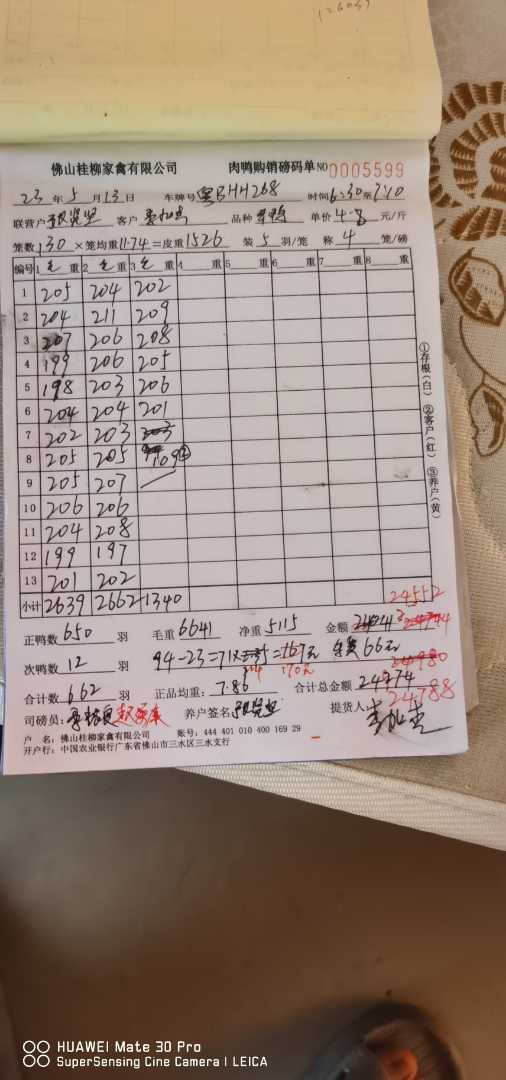 佛山桂柳家禽有限公司 肉鸭购销磅码单 NO 0005599
23 年 5 月 13 日 车牌号 粤BHH268 时间 6:30至7:10
联营户 客户 品种 单价 4.8 元/斤
笼数 130 × 笼均重 11.74 = 皮重 1526 装 5 羽/笼 称 4 笼/磅
编号 1 毛 重 2 毛 重 3 毛 重 4 重 5 重 6 重 7 重 8 重
1 205 204 202
2 204 211 209
3 207 206 208
4 199 206 205
5 198 203 206
6 204 204 201
7 202 203 203
8 205 205 109②
9 205 207
10 206 206
11 204 208
12 199 197
13 201 202
小计 2639 2662 1340
①存根(白) ②客户(红) ③养户(黄)
24552
正鸭数 650 羽 毛重 6641 净重 5115 金额
次鸭数 12 羽 94-23=71× =167元 66元
170元
24980
合计数 662 羽 正品均重: 7.86 合计总金额 24774
24788
司磅员: 养户签名 提货人
户 名: 佛山桂柳家禽有限公司 账号: 444 401 010 400 169 29
开户行: 中国农业银行广东省佛山市三水区三水支行
HUAWEI Mate 30 Pro
SuperSensing Cine Camera | LEICA